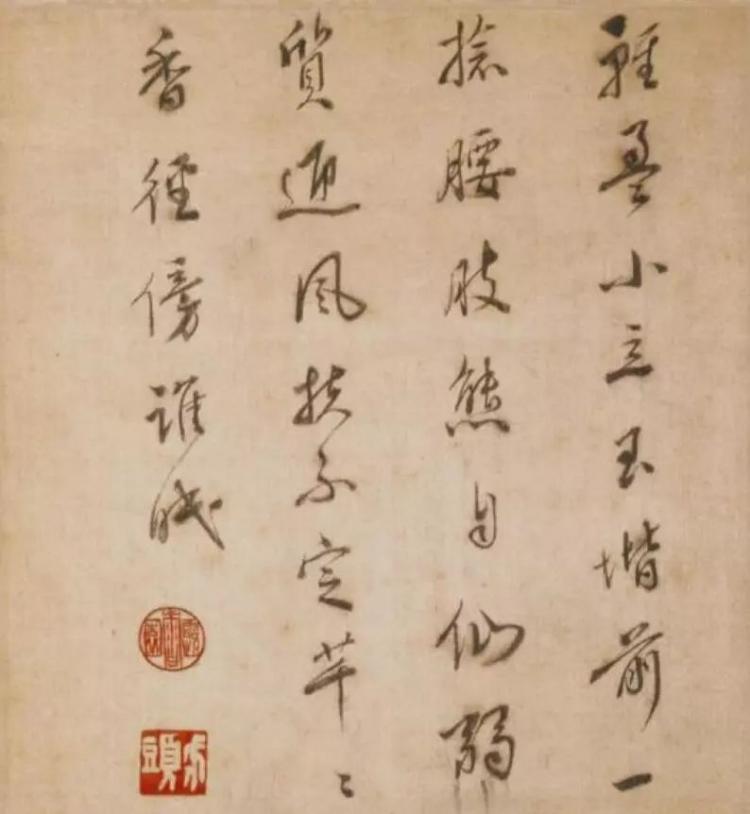 輕盈小立玉堦前一
捻腰肢態自仙弱
質迎風扶不定芊〻
香徑傍誰眠
虎頭